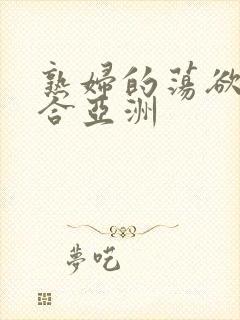 熟婦的蕩欲
合亞洲
夢吃